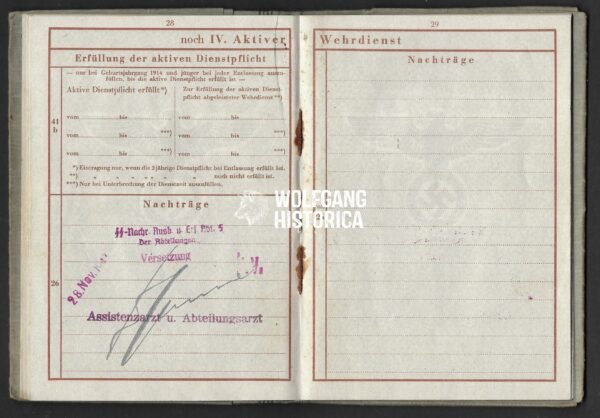 28
noch IV. Aktiver
Erfüllung der aktiven Dienstpflicht
— nur bei Geburtsjahrgang 1914 und jünger bei jeder Entlassung auszu-
füllen, bis die aktive Dienstpflicht erfüllt ist —
Aktive Dienstpflicht erfüllt*)
Zur Erfüllung der aktiven Dienst-
pflicht abgeleisteter Wehrdienst**)
41
b
vom bis
vom bis
vom bis ***)
vom bis ***)
vom bis ***)
vom bis ***)
*) Eintragung nur, wenn die 2jährige Dienstpflicht bei Entlassung erfüllt ist.
**) " " " " " " noch nicht erfüllt ist.
***) Nur bei Unterbrechung der Dienstzeit auszufüllen.
Nachträge
26
SS-Nachr. Ausb. u. Ers. Abt. 5
Der Abteilungs
Versetzung
28. Nov.
Assistenzarzt u. Abteilungsarzt
29
Wehrdienst
Nachträge
WOLFGANG
HISTORICA